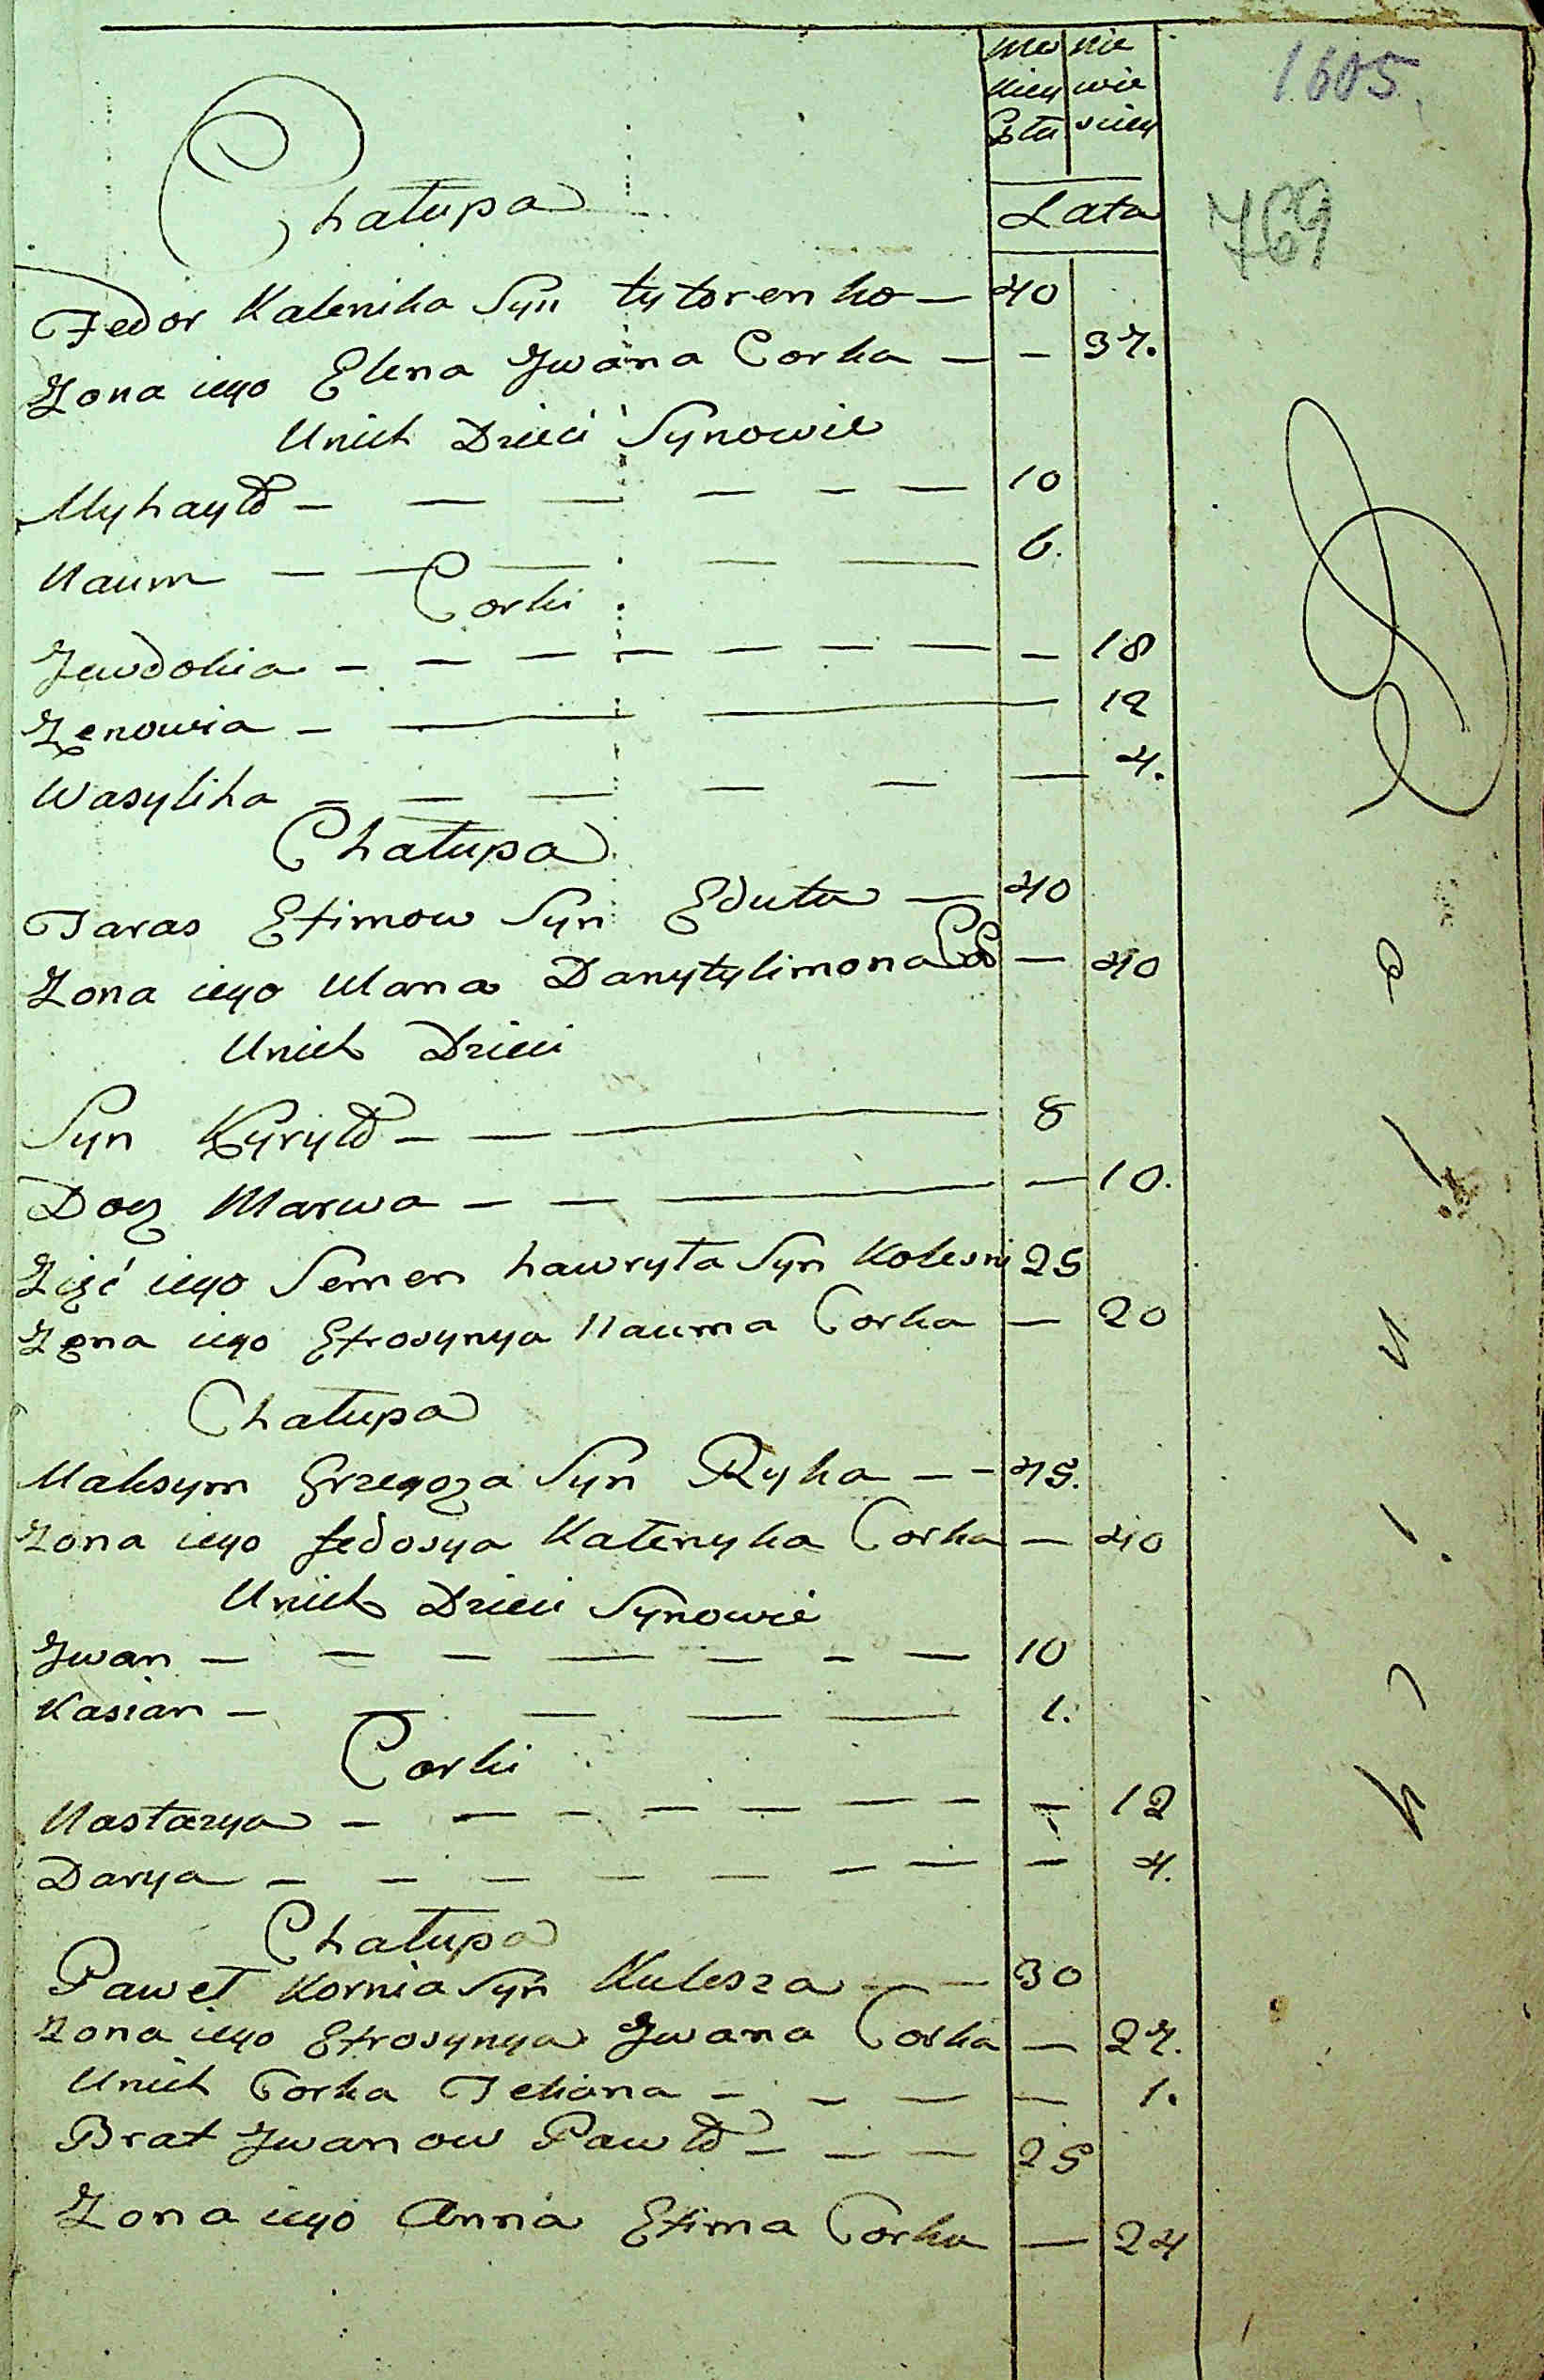 męs nie
kiey wie
Płta sciey
1605
Lata
769
Chałupa
Fedor Kalenika Syn tytorenko — 40
Zona iego Elena Jwana Corka — — 37.
Unich Dzieci Synowie
Myhayło — 10
Naum — 6.
Corki
Jewdokia — 18
Zenowia — 12
Wasyliha — 4.
Chałupa
Taras Efimow Syn Eduta — 40
Zona iego Ulana Danyłylimona Co — 40
Unich Dzieci
Syn Kyryło — 8
Dog Marwa — 10.
Zięć iego Semen hawryła Syn Kolesni 25
Zona iego Efrosynya Nauma Corka — 20
Chałupa
Maksym Grzegoza Syn Ryka — — 45.
Zona iego fedosya Katenyka Corka — 40
Unich Dzieci Synowie
Jwan — 10
Kasian — 1.
Corki
Nastazya — 12
Darya — 4.
Chałupa
Paweł Kornia Syn Kulesza — — 30
Zona iego Efrosynya Jwana Corka — 27.
Unich Corka Tetiana — 1.
Brat Jwanow Pawło — 25
Zona iego Anna Efima Corka — 24